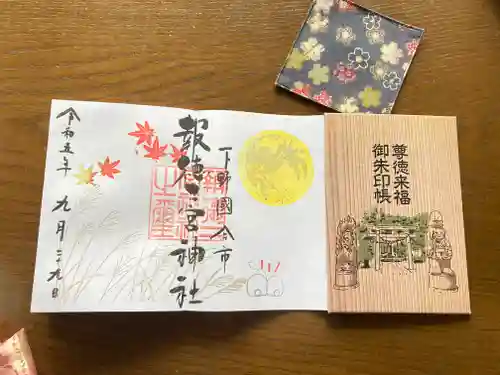 尊徳来福
御朱印帳
下野國今市
報徳二宮神社
令和五年
九月二十九日